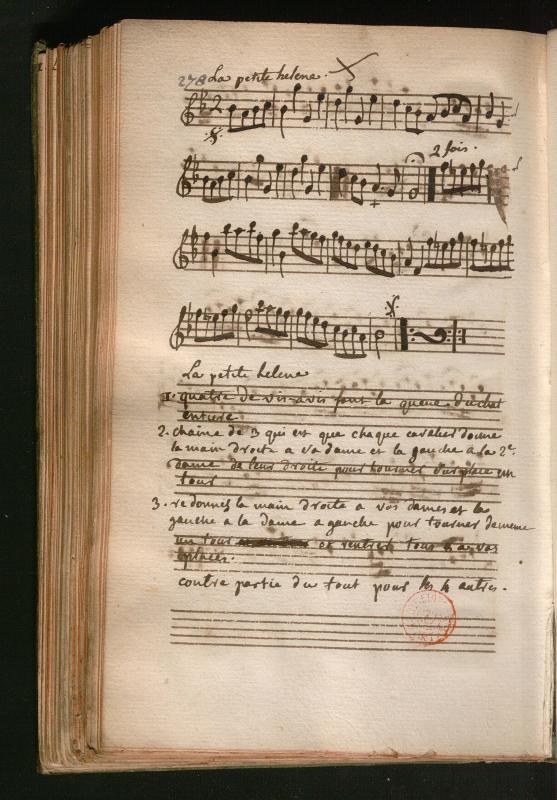 278 La petite helene.
2 fois.
La petite helene
1. quatre de vis-avis font la queue du chat
entiere
2. chaine de 3 qui est que chaque cavalier donne
la main droite a va dame et la gauche a la 2e.
dame de leur droite pour tourner sur place un
tour
3. redonnez la main droite a vos dames et la
gauche a la dame a gauche pour tourner de meme
un tour et rentrer tous a vos
places.
contre partie du tout pour les 4 autres.